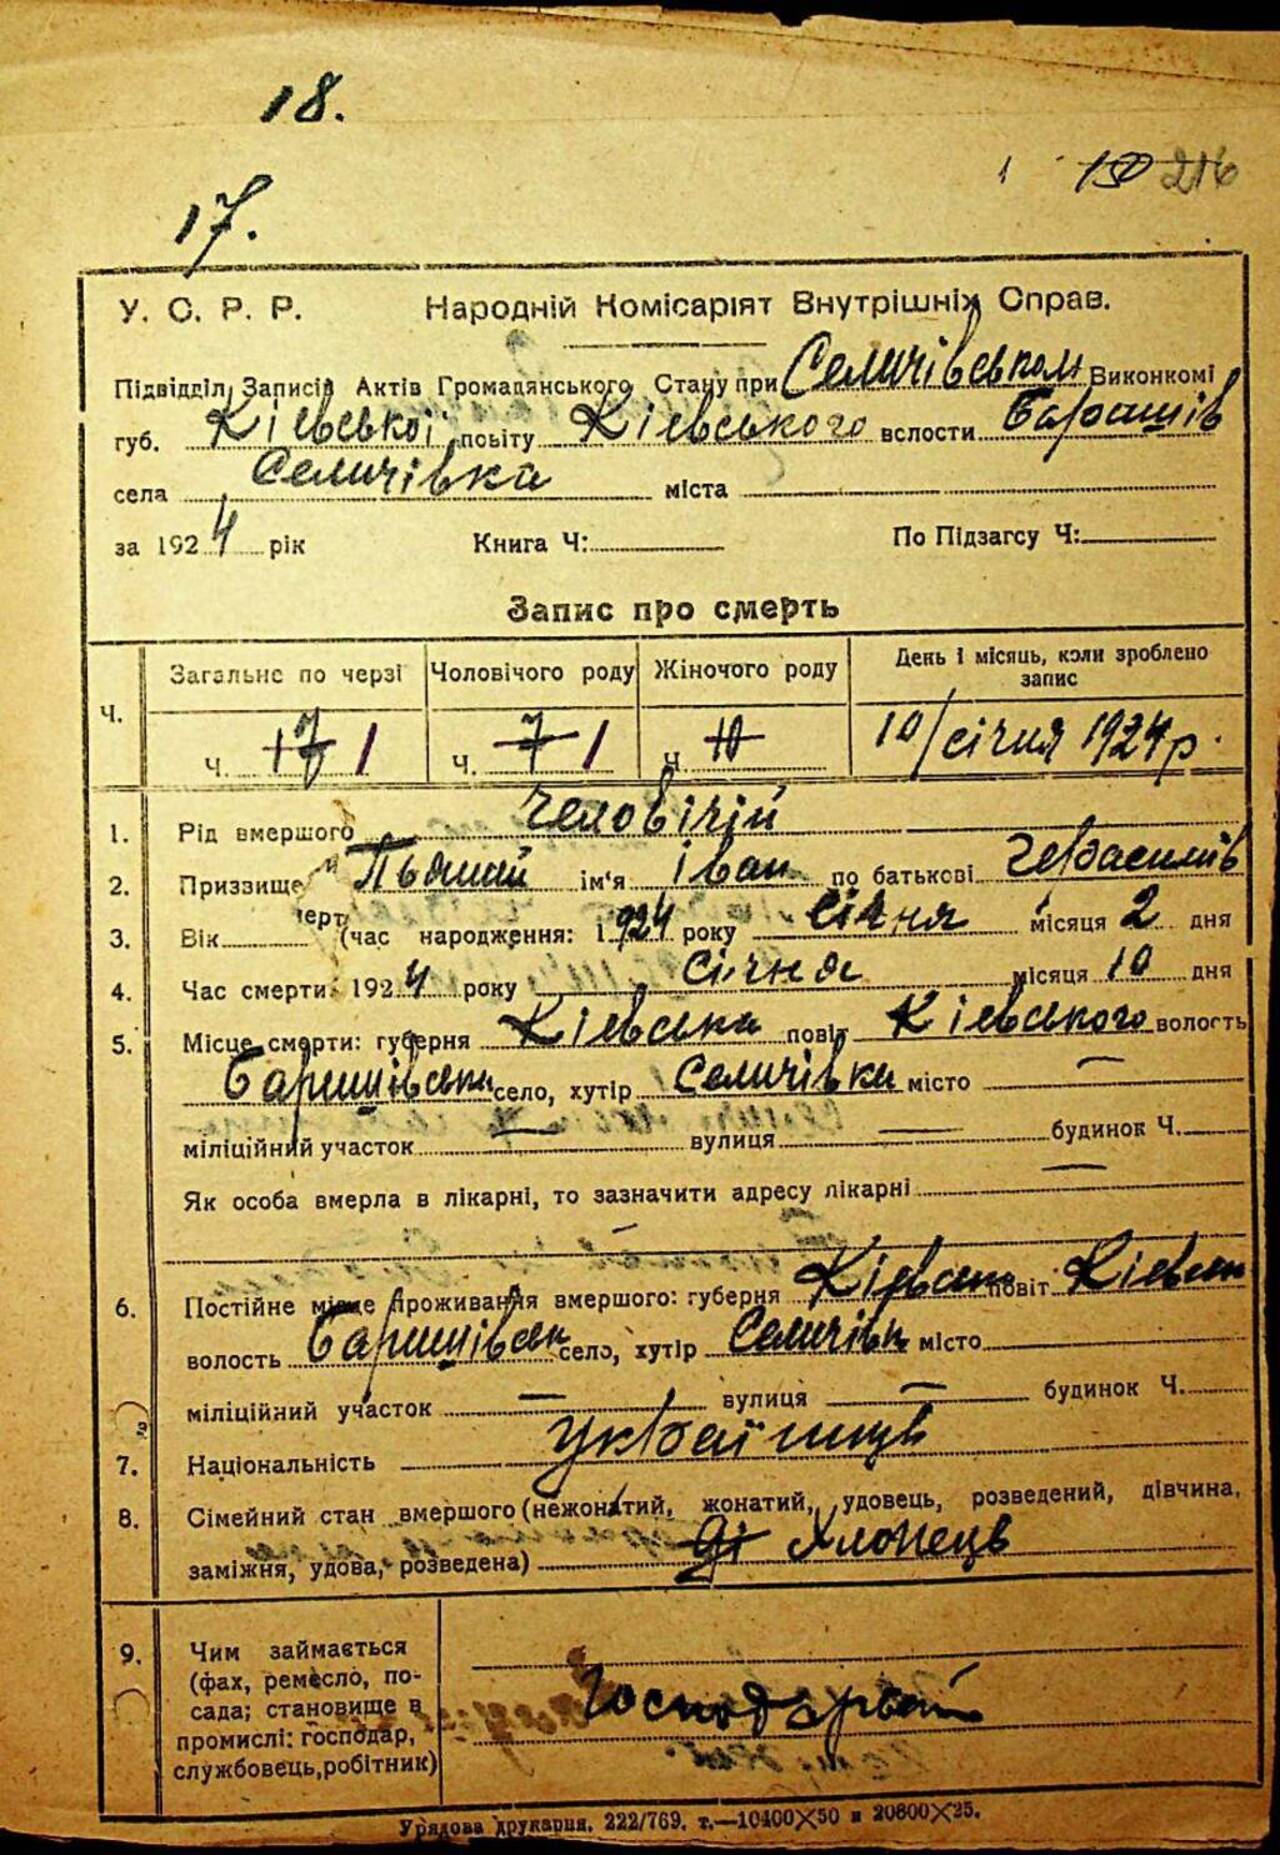 18.
150 216
17.
У. С. Р. Р. Народній Комісаріят Внутрішніх Справ.
Підвідділ Записів Актів Громадянського Стану при Селичівськом Виконкомі
губ. Кієвської повіту Кієвського волости Баришів
села Селичівка міста
за 1924 рік Книга Ч: По Підзагсу Ч:
Запис про смерть
Ч. Загальне по черзі Чоловічого роду Жіночого роду День і місяць, коли зроблено запис
Ч. 17 1 Ч. 7 1 Ч. 10 10/січня 1924 р.
1. Рід вмершого Человічій
2. Приззище Пьяний ім'я Іван по батькові Герасимів
3. Вік (час народження: 1924 року Січня місяця 2 дня
4. Час смерти: 1924 року Січня місяця 10 дня
5. Місце смерти: губерня Кієвська повіт Кієвського волость
Баришівська село, хутір Селичівка місто —
міліційний участок — вулиця — будинок Ч.
Як особа вмерла в лікарні, то зазначити адресу лікарні —
—
6. Постійне місце проживання вмершого: губерня Кієвськ повіт Кієвськ
волость Баришівськ село, хутір Селичівк місто
міліційний участок — вулиця — будинок Ч.
7. Національність Українець
8. Сімейний стан вмершого (нежонатий, жонатий, удовець, розведений, дівчина,
заміжня, удова, розведена) ді Хлопець
9. Чим займається
(фах, ремесло, по-
сада; становище в
промислі: господар,
службовець, робітник)
Урядова друкарня. 222/769. т.—10400×50 и 20800×25.